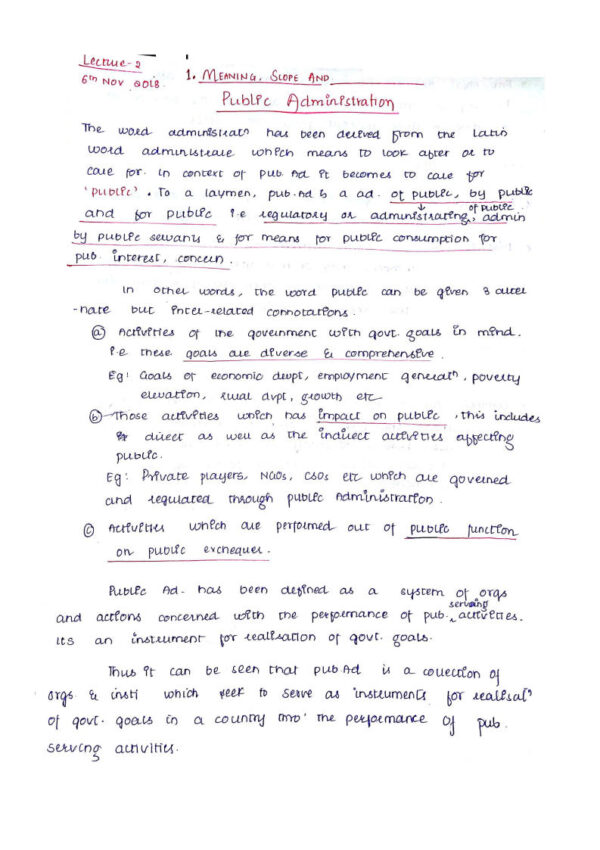 Lecture-2
6th NOV 2018.
1. MEANING, SCOPE AND
Public Administration
The word administratn has been derived from the Latin
word administrare which means to look after or to
care for. In context of pub. Ad it becomes to care for
'public'. To a laymen, pub. Ad is a ad. of public, by public
and for public i.e regulatory or administrating of public, admin
by public servants & for means for public consumption for
pub. interest, concern.
In other words, the word public can be given 3 alter
-nate but inter-related connotations.
(a) Activities of the government with govt. goals in mind.
i.e these goals are diverse & comprehensive.
Eg: Goals of economic devpt, employment generatn, poverty
elevation, rural dvpt, growth etc
(b) Those activities which has impact on public, this includes
direct as well as the indirect activities affecting
public.
Eg: Private players, NGOs, CSOs etc which are governed
and regulated through public Administration.
(c) Activities which are performed out of public function
on public exchequer.
Public Ad. has been defined as a system of orgs
and actions concerned with the performance of pub. serving activities.
Its an instrument for realisation of govt. goals.
Thus it can be seen that pub Ad is a collection of
orgs & insti which seek to serve as instruments for realisatn
of govt. goals in a country thro' the performance of pub.
serving activities.